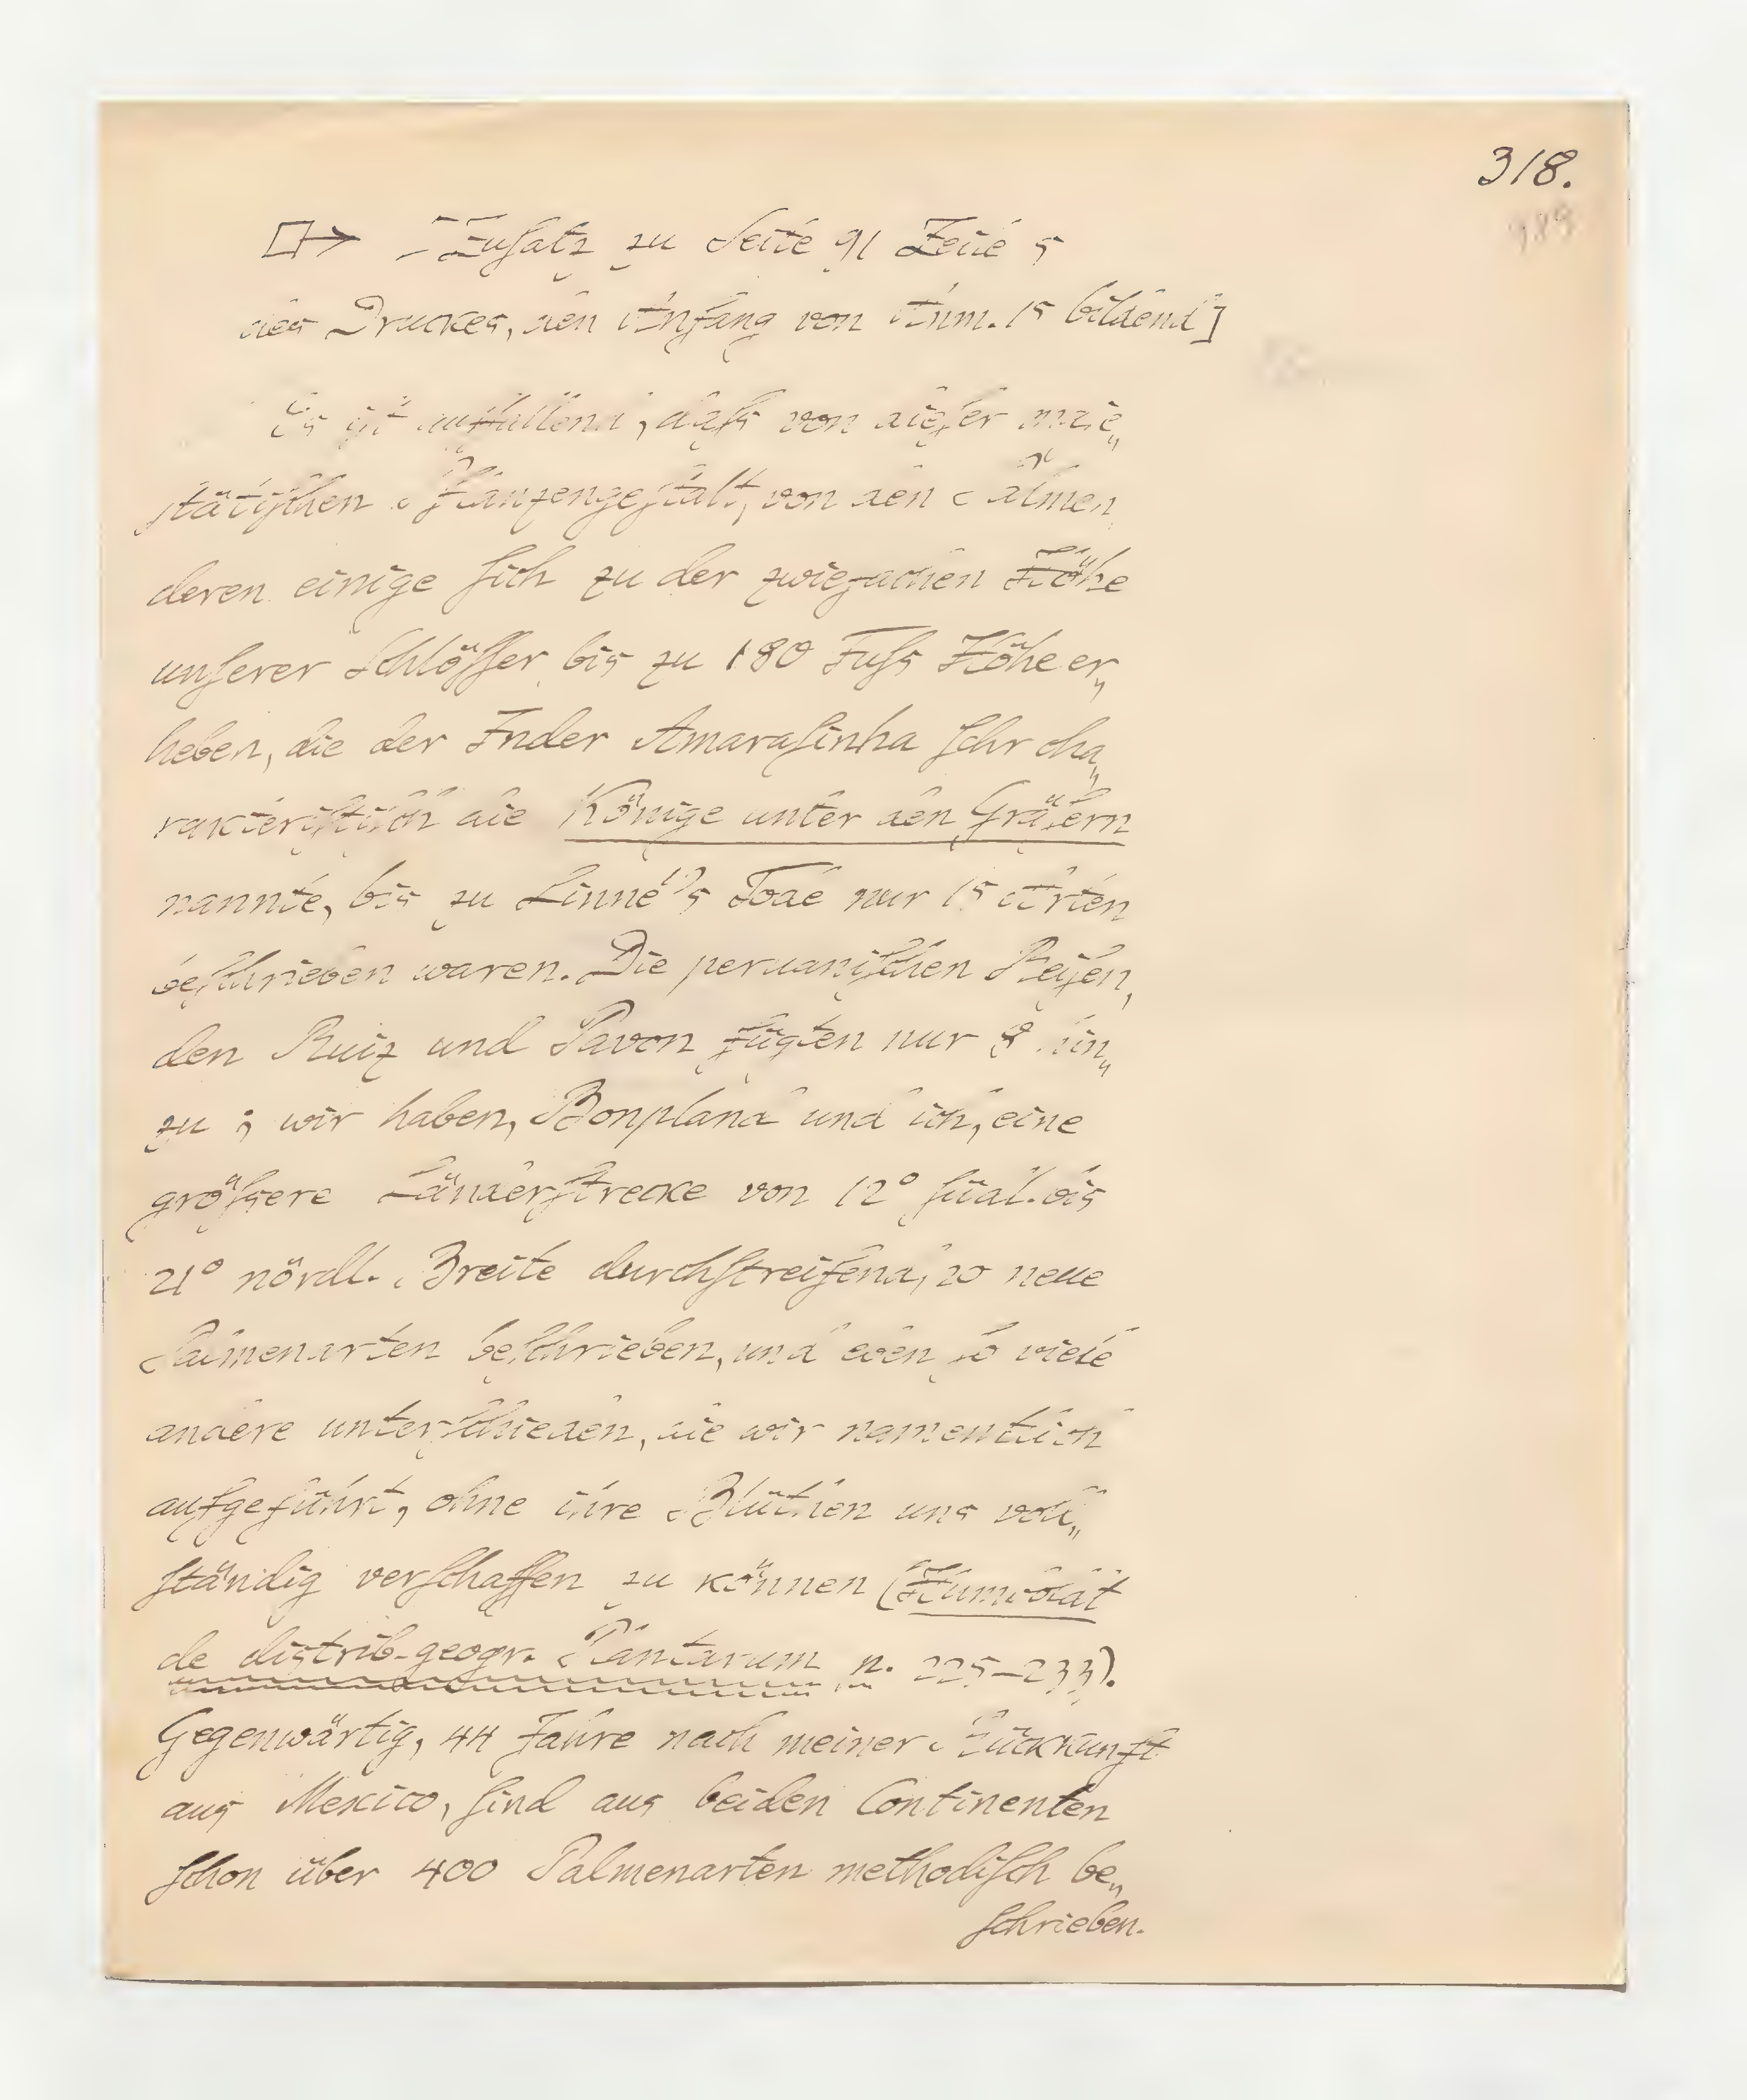 318.
989
[Zusatz zu Seite 91 Zeile 5
des Druckes, den Anfang von Anm. 15 bildend]
Es ist auffallend, daſs von dieſer maje„
ſtätiſchen Pflanzengeſtalt, von den Palmen,
deren einige ſich zu der zwiefachen Höhe
unſerer Schlöſſer bis zu 180 Fuſs Höhe er„
heben, die der Inder Amaraſinha ſehr cha„
rakteriſtiſch die Könige unter den Gräſern
nannte, bis zu Linné's Tode nur 15 Arten
beſchrieben waren. Die peruaniſchen Reiſen„
den Ruiz und Pavon fügten nur 8 hin„
zu; wir haben, Bonpland und ich, eine
gröſsere Länderſtrecke von 12° ſüdl. bis
21° nördl. Breite durchſtreifend, 20 neue
Palmenarten beſchrieben, und eben ſo viele
andere unterſchieden, die wir namentlich
aufgeführt, ohne ihre Blüthen uns voll„
ſtändig verſchaffen zu können (Humboldt
de distrib. geogr. Plantarum p. 225–233).
Gegenwärtig, 44 Jahre nach meiner Rückkunft
aus Mexico, ſind aus beiden Continenten
ſchon über 400 Palmenarten methodiſch be„
ſchrieben.